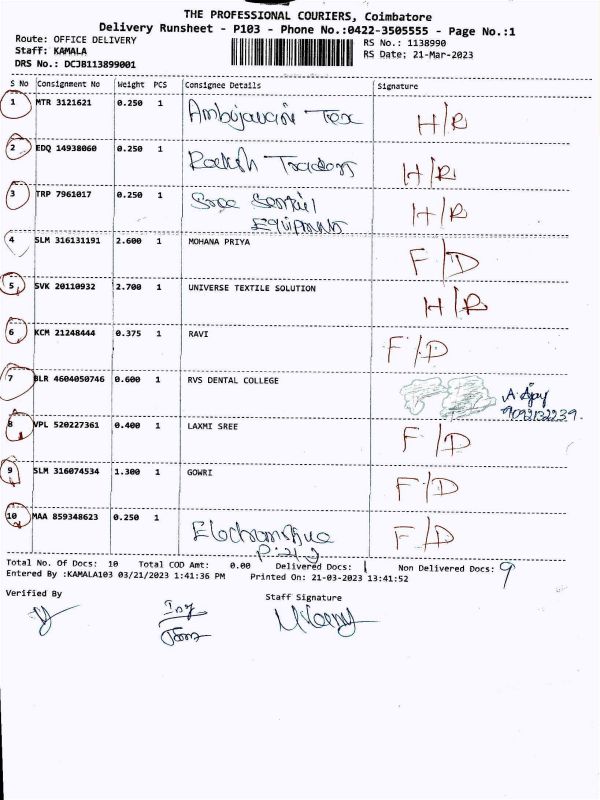 THE PROFESSIONAL COURIERS, Coimbatore
Delivery Runsheet - P103 - Phone No.:0422-3505555 - Page No.:1
Route: OFFICE DELIVERY
RS No.: 1138990
Staff: KAMALA
RS Date: 21-Mar-2023
DRS No.: DCJB113899001
S No Consignment No Weight PCS Consignee Details Signature
1 MTR 3121621 0.250 1 Tex H/R
2 EDQ 14938060 0.250 1 Traders H/R
3 TRP 7961017 0.250 1 Sree H/R
4 SLM 316131191 2.600 1 MOHANA PRIYA F/D
5 SVK 20110932 2.700 1 UNIVERSE TEXTILE SOLUTION H/R
6 KCM 21248444 0.375 1 RAVI F/D
7 BLR 4604050746 0.600 1 RVS DENTAL COLLEGE A. Ajay
8 VPL 520227361 0.400 1 LAXMI SREE F/D
9 SLM 316074534 1.300 1 GOWRI F/D
10 MAA 859348623 0.250 1 F/D
Total No. Of Docs: 10 Total COD Amt: 0.00 Delivered Docs: 1 Non Delivered Docs: 9
Entered By :KAMALA103 03/21/2023 1:41:36 PM Printed On: 21-03-2023 13:41:52
Verified By Staff Signature